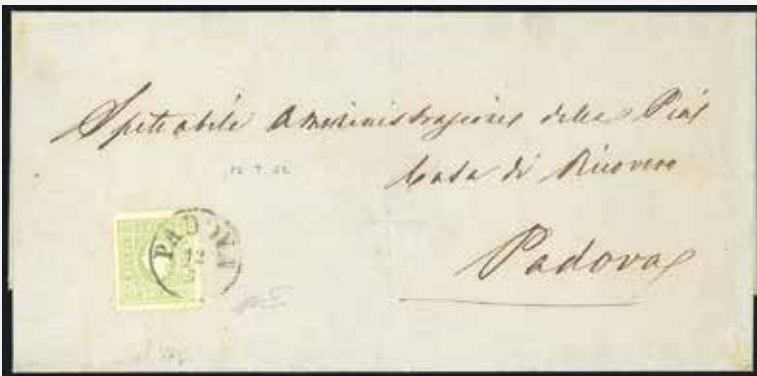 Spetabile Amministrazione della Pia
Casa di Ricovero
Padova
PADOVA
12